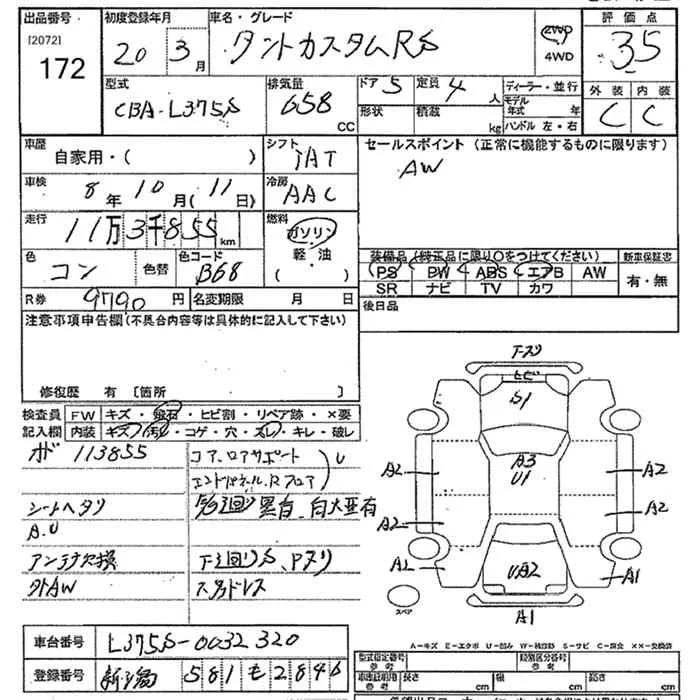 出品番号 初度登録年月 車名・グレード 評価点
[2072] 172 20年 3月 タントカスタムRS 2WD 4WD 3.5
型式 排気量 ドア 5 定員 4人 ディーラー・並行 外装 内装
CBA-L375S 658 CC 形状 積載 kg モデル年式 年 ハンドル 左・右 C C
車歴 自家用・( ) シフト IAT セールスポイント (正常に機能するものに限ります)
車検 8年 10月 (11日) 冷房 AAC AW
走行 11万3千855km 燃料 ガソリン 軽油 ( )
色 コン 色替 色コード B68
装備品 (純正品に限り○をつけてください) 新車保証書
PS PW ABS エアB AW 有・無
SR ナビ TV カワ
R券 9790円 名変期限 月 日 後日品
注意事項申告欄(不具合内容等は具体的に記入して下さい)
修復歴 有 [箇所 ]
検査員 FW キズ・飛石・ヒビ割・リペア跡・×要
記入欄 内装 キズ・汚れ・コゲ・穴・スレ・キレ・破レ
113855
コア、ロアサポート
エンドパネル、Rフロア
U
シートヘタリ
A.U
アンテナ欠損
外AW
下回りS、Pヌリ
スタッドレス
S1
A3
U1
A2
A2
A2
A2
A1
A1
UA2
A1
スペア
A-キズ E-エクボ U-凹み W-補修跡 S-サビ C-腐食 XX-交換済
車台番号 L375S-0032320
登録番号 新潟 581 も 2846
型式指定番号 参考 類別区分番号 参考
長さ cm 幅 cm 高さ cm